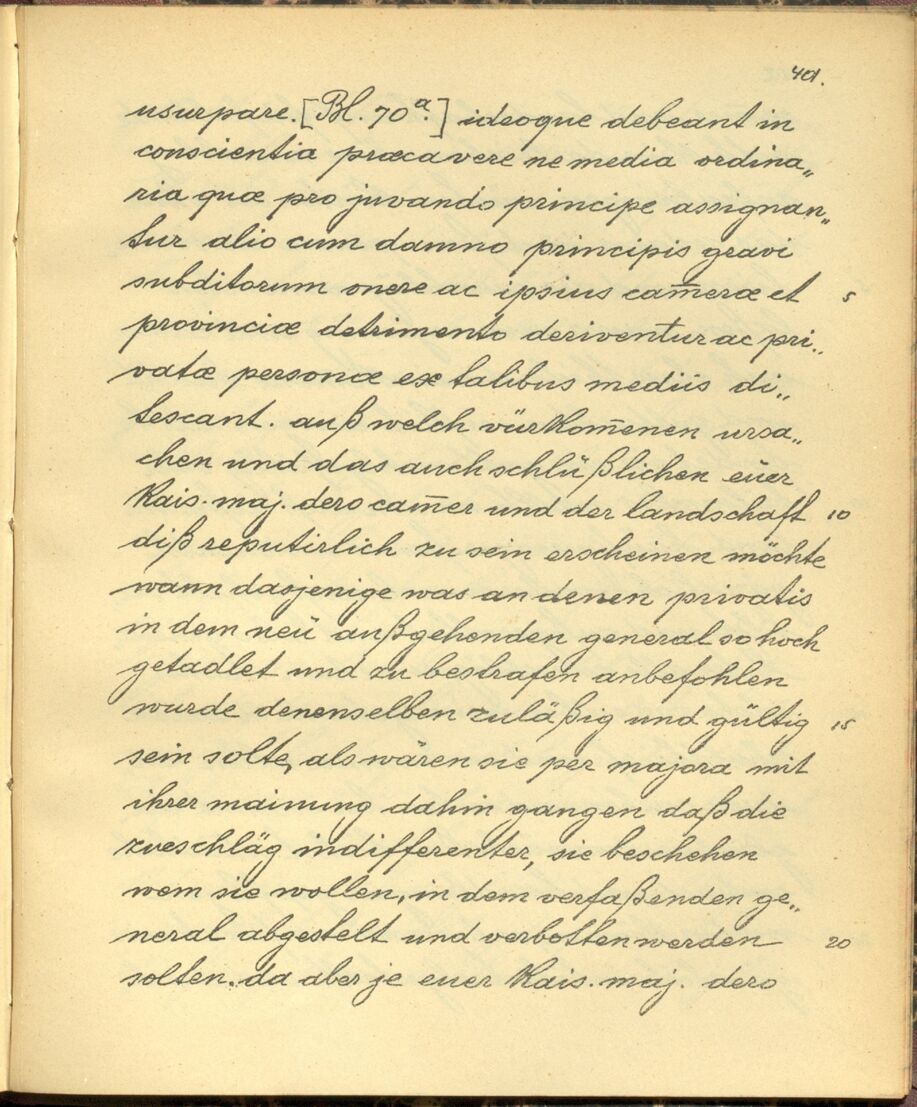 401.
usurpare. [Bl. 70a.] ideoque debeant in
conscientia præcavere ne media ordina„
ria quæ pro juvando principe assignan„
tur alio cum damno principis gravi
subditorum onere ac ipsius cam̅eræ et 5
provinciæ detrimento deriventur ac pri„
vatæ personæ ex talibus mediis di„
tescant. auß welch vürkom̅enen ursa„
chen und das auch schlüßlichen eüer
kais. maj. dero cam̅er und der landschaft 10
diß reputirlich zu sein erscheinen möchte
wann dasjenige was an denen privatis
in dem neü außgehenden general so hoch
getadlet und zu bestrafen anbefohlen
wurde denenselben zuläßig und gültig 15
sein solte, als wären sie per majora mit
ihrer mainung dahin gangen daß die
zueschläg indifferenter, sie beschehen
wem sie wollen, in dem verfaßenden ge„
neral abgestelt und verbotten werden 20
solten. da aber je euer kais. maj. dero